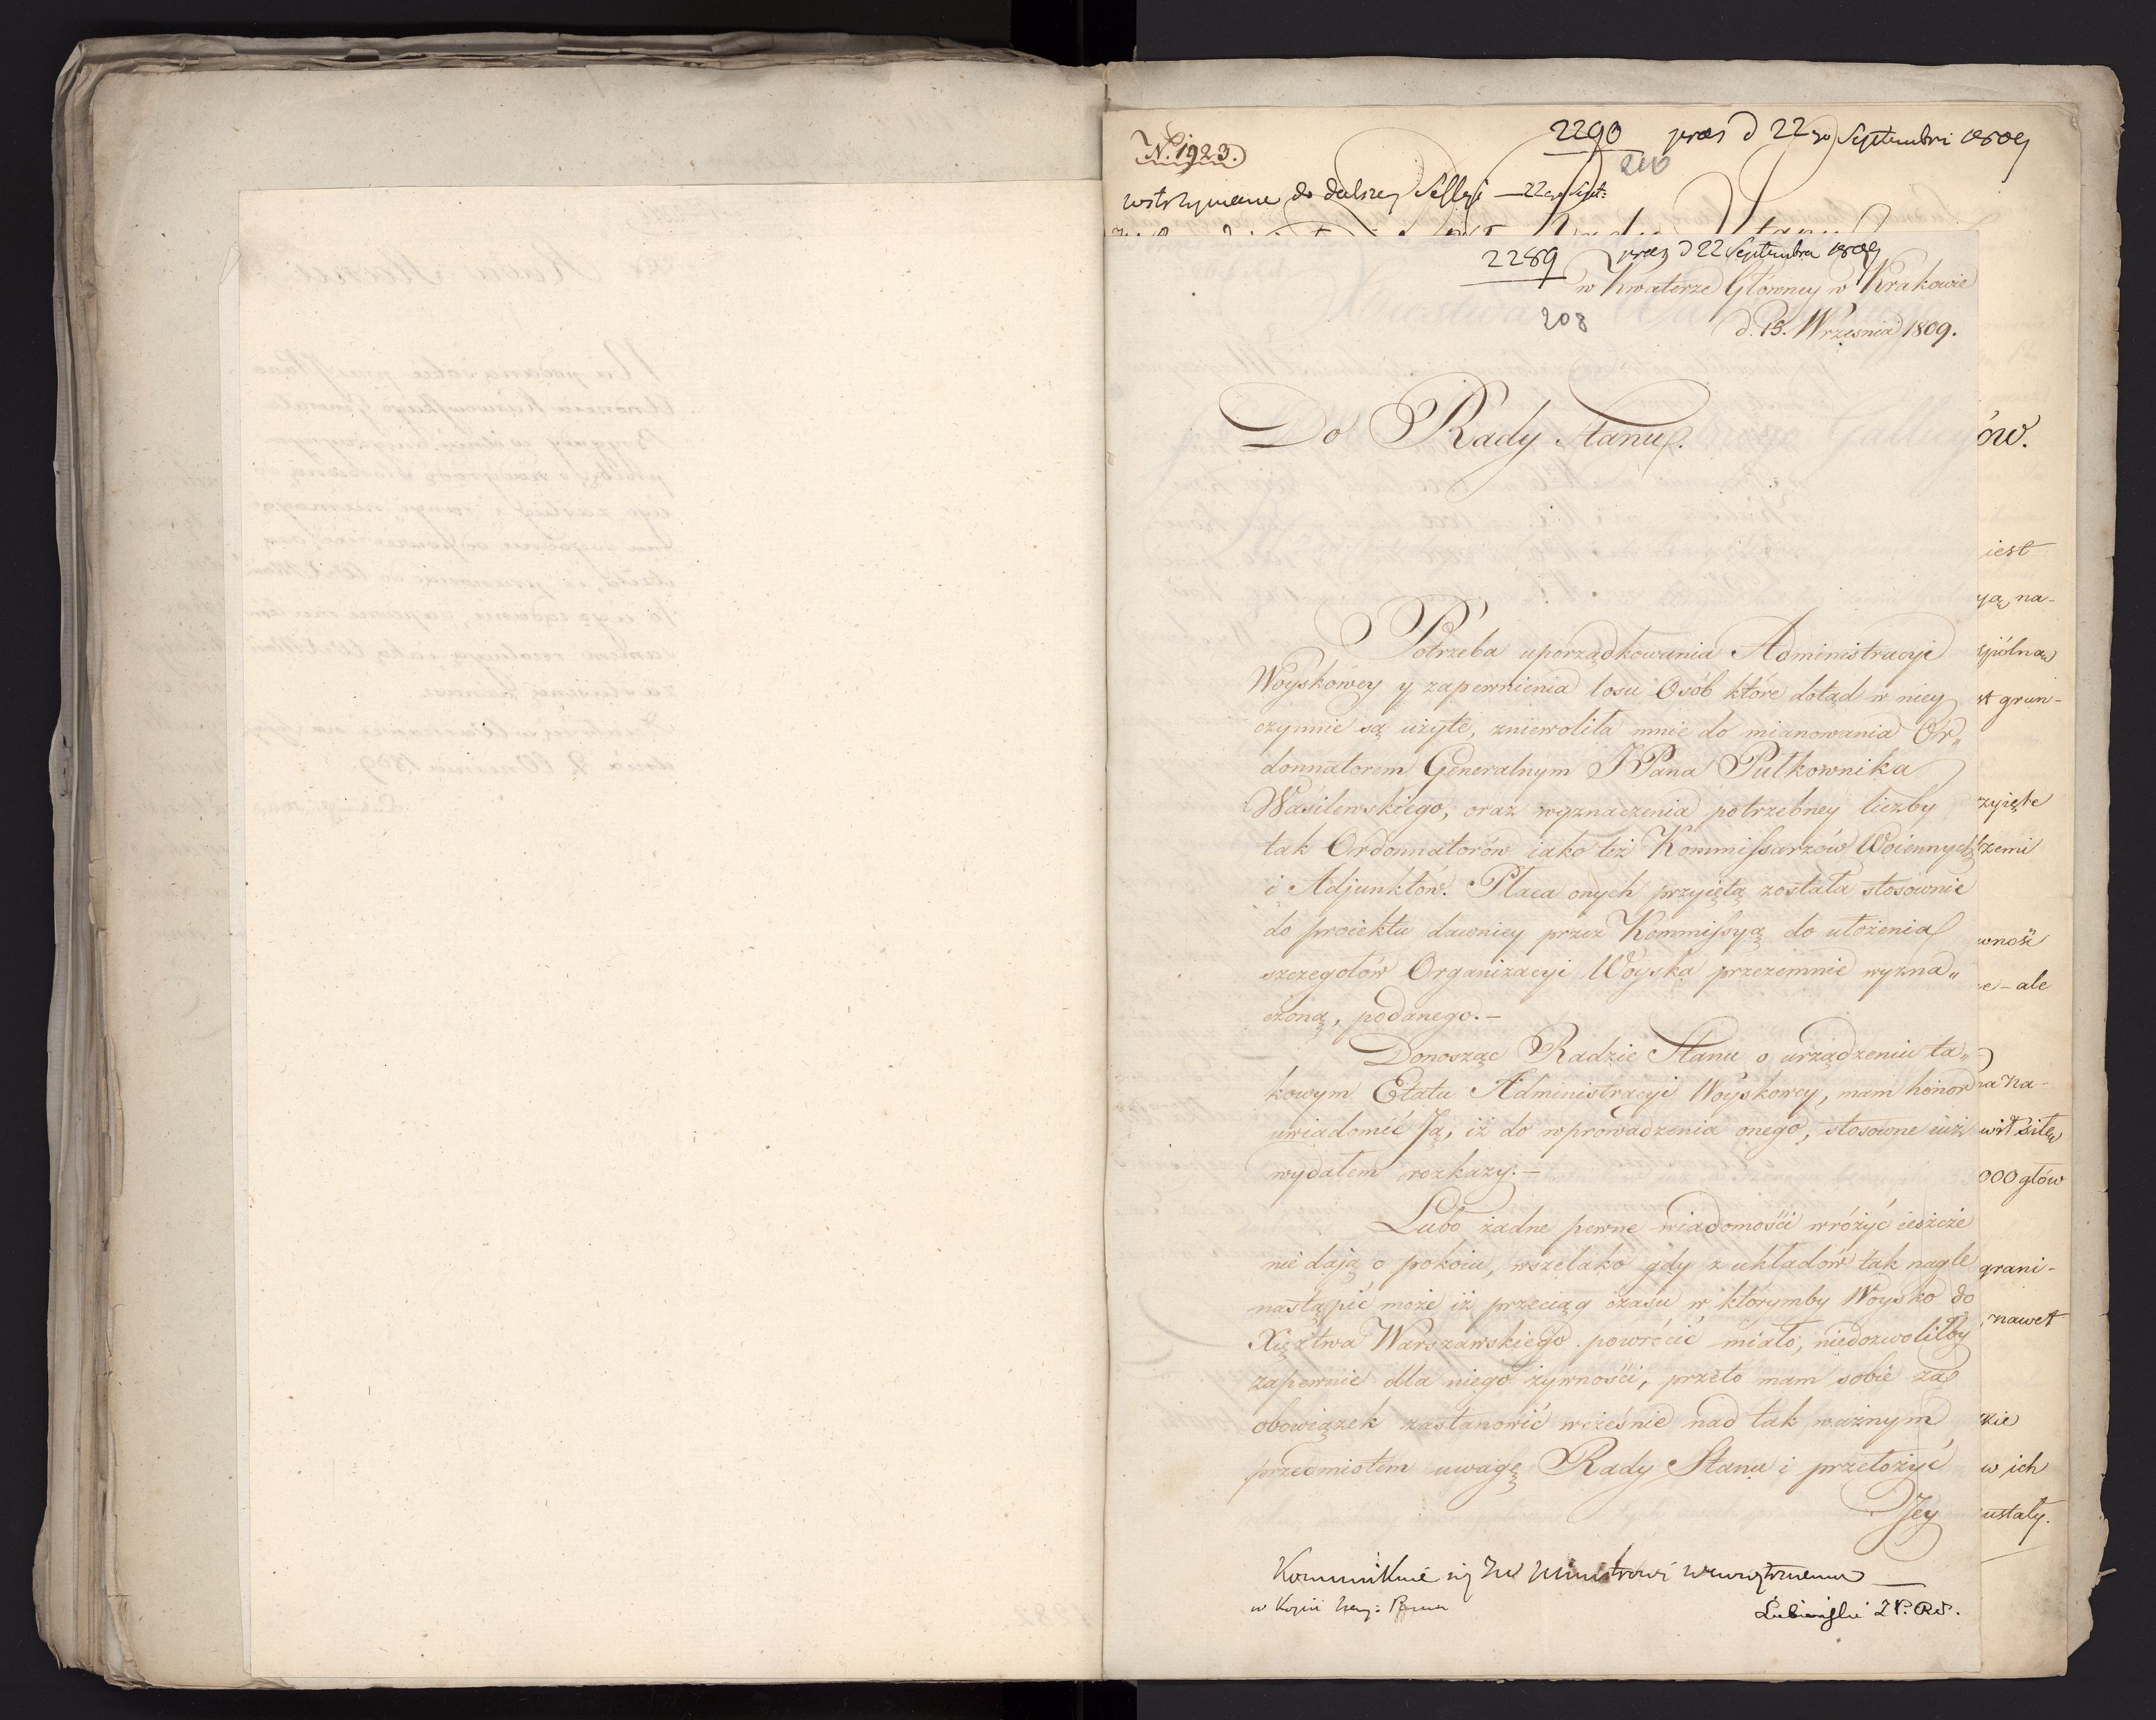 N. 1923.
2290 præs d 22 Septembri 1809
210
wstrzymane do dalszey Sessyi — 22 Sept:
2289 præs d 22 Septembra 1809
w Kwaterze Główney w Krakowie
208
d. 15. Września 1809.
Do Rady Stanu.
Potrzeba uporządkowania Administracyi
Woyskowey y zapewnienia losu Osób które dotąd w niey
czynnie są użyte, zniewoliła mnie do mianowania Or„
donnatorem Generalnym JPana Pułkownika
Wasilewskiego, oraz wyznaczenia potrzebney liczby
tak Ordonnatorów iako też Kommissarzów Woiennych
i Adjunktów. Płaca onych przyiętą została stosownie
do proiektu dawniey przez Kommissyą do ułożenia
szczegołów Organizacyi Woyska przezemnie wyzna„
czoną, podanego.—
Donosząc Radzie Stanu o urządzeniu ta„
kowym Etatu Administracyi Woyskowey, mam honor
uwiadomić Ją, iż do wprowadzenia onego, stosowne iuż
wydałem rozkazy.—
Lubo żadne pewne wiadomości wróżyć ieszcze
nie dają o pokoiu, wszelako gdy z układów tak nagle
nastąpić może iż przeciąg czasu w którymby Woysko do
Xięztwa Warszawskiego powrócić miało, niedozwoliłby
zapewnić dla niego żywności, przeto mam sobie za
obowiązek zastanowić wcześnie nad tak ważnym
przedmiotem uwagę Rady Stanu i przełożyć
Jey
Kommunikuie się JW Ministrowi Wewnętrznemu —
w Kopii
Łubieński Z P. RS.
ów.
iest
yą na-
spólna
st grun-
zyięte
zemi
wność
e - ale
a na-
wił siłę
000 głów
grani-
nawet
kie
w ich
ustały.